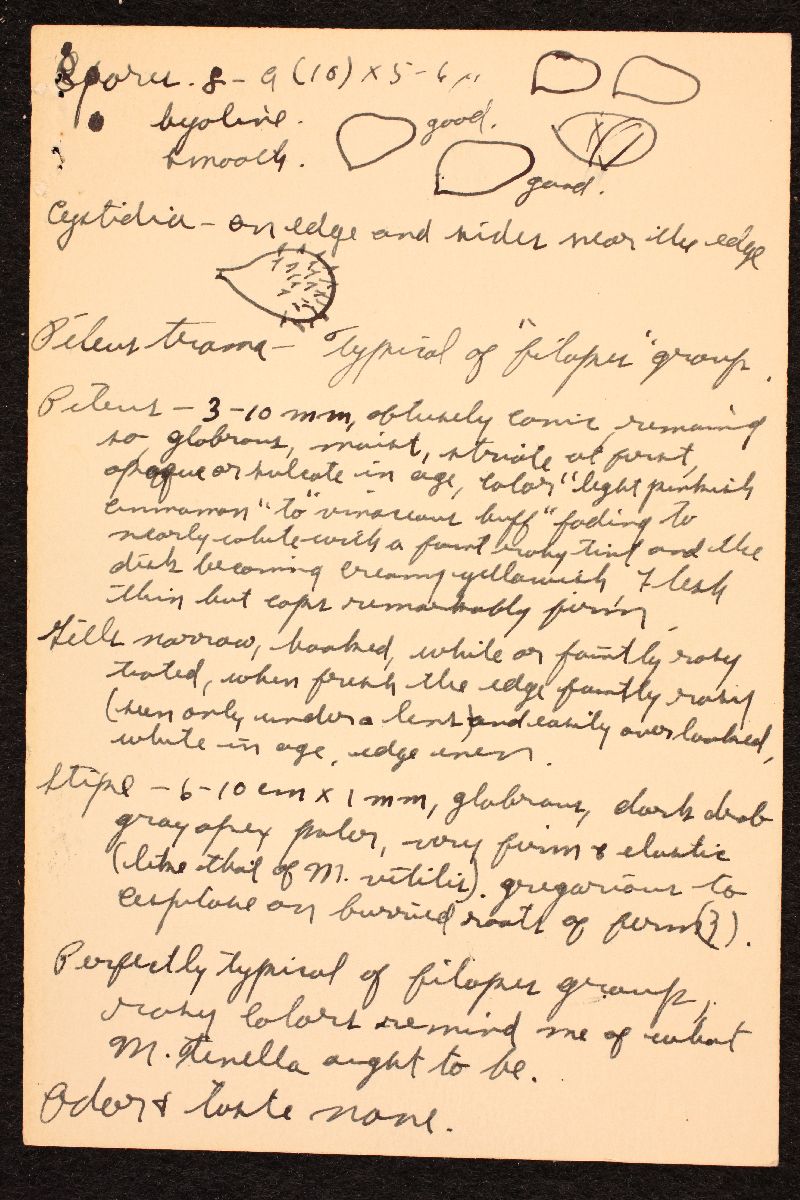 Spores. 8-9 (10) x 5-6 µ
hyaline.
good.
smooth.
good.
Cystidia - on edge and sides near the edge
Pileus trama - Typical of "filopes" group.
Pileus - 3-10 mm, obtusely conic, remaining
so, glabrous, moist, striate at first,
opaque or sulcate in age, color "light pinkish
cinnamon" to "vinaceous buff" fading to
nearly white with a faint rosy tint and the
disk becoming creamy yellowish Flesh
thin but caps remarkably firm,
Gills narrow, hooked, white or faintly rosy
tinted, when fresh the edge faintly rosy
(seen only under a lens) and easily overlooked,
white in age, edge even.
Stipe - 6-10 cm x 1 mm, glabrous, dark drab
gray apex paler, very firm & elastic
(like that of M. vitilis). gregarious to
cespitose on burried roots of ferns(?).
Perfectly typical of filopes group,
rosy colors remind me of what
M. Tenella aught to be.
Odor & taste none.